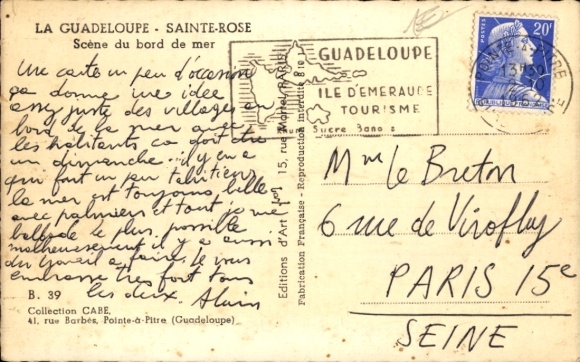 LA GUADELOUPE - SAINTE-ROSE
Scène du bord de mer
Une carte un peu d'occasion
ça donne une idée
assez juste des villages au
bord de la mer avec
les habitants ça doit être
un dimanche... il y en a
qui font un peu tahitiens
la mer est toujours belle
avec palmiers et tout je me
ballade le plus possible
malheureusement il y a aussi
du travail à faire je vous
embrasse très fort tous
les deux Alain
B. 39
Collection CABE,
41, rue Barbès, Pointe-à-Pitre (Guadeloupe)
Editions d'Art 15, rue Martel, PARIS
Fabrication Française - Reproduction Interdite
GUADELOUPE
ILE D'EMERAUDE
TOURISME
Sucre
POSTES
20F
POINTE A PITRE
13H30
Mme Le Breton
6 rue de Viroflay
PARIS 15e
SEINE